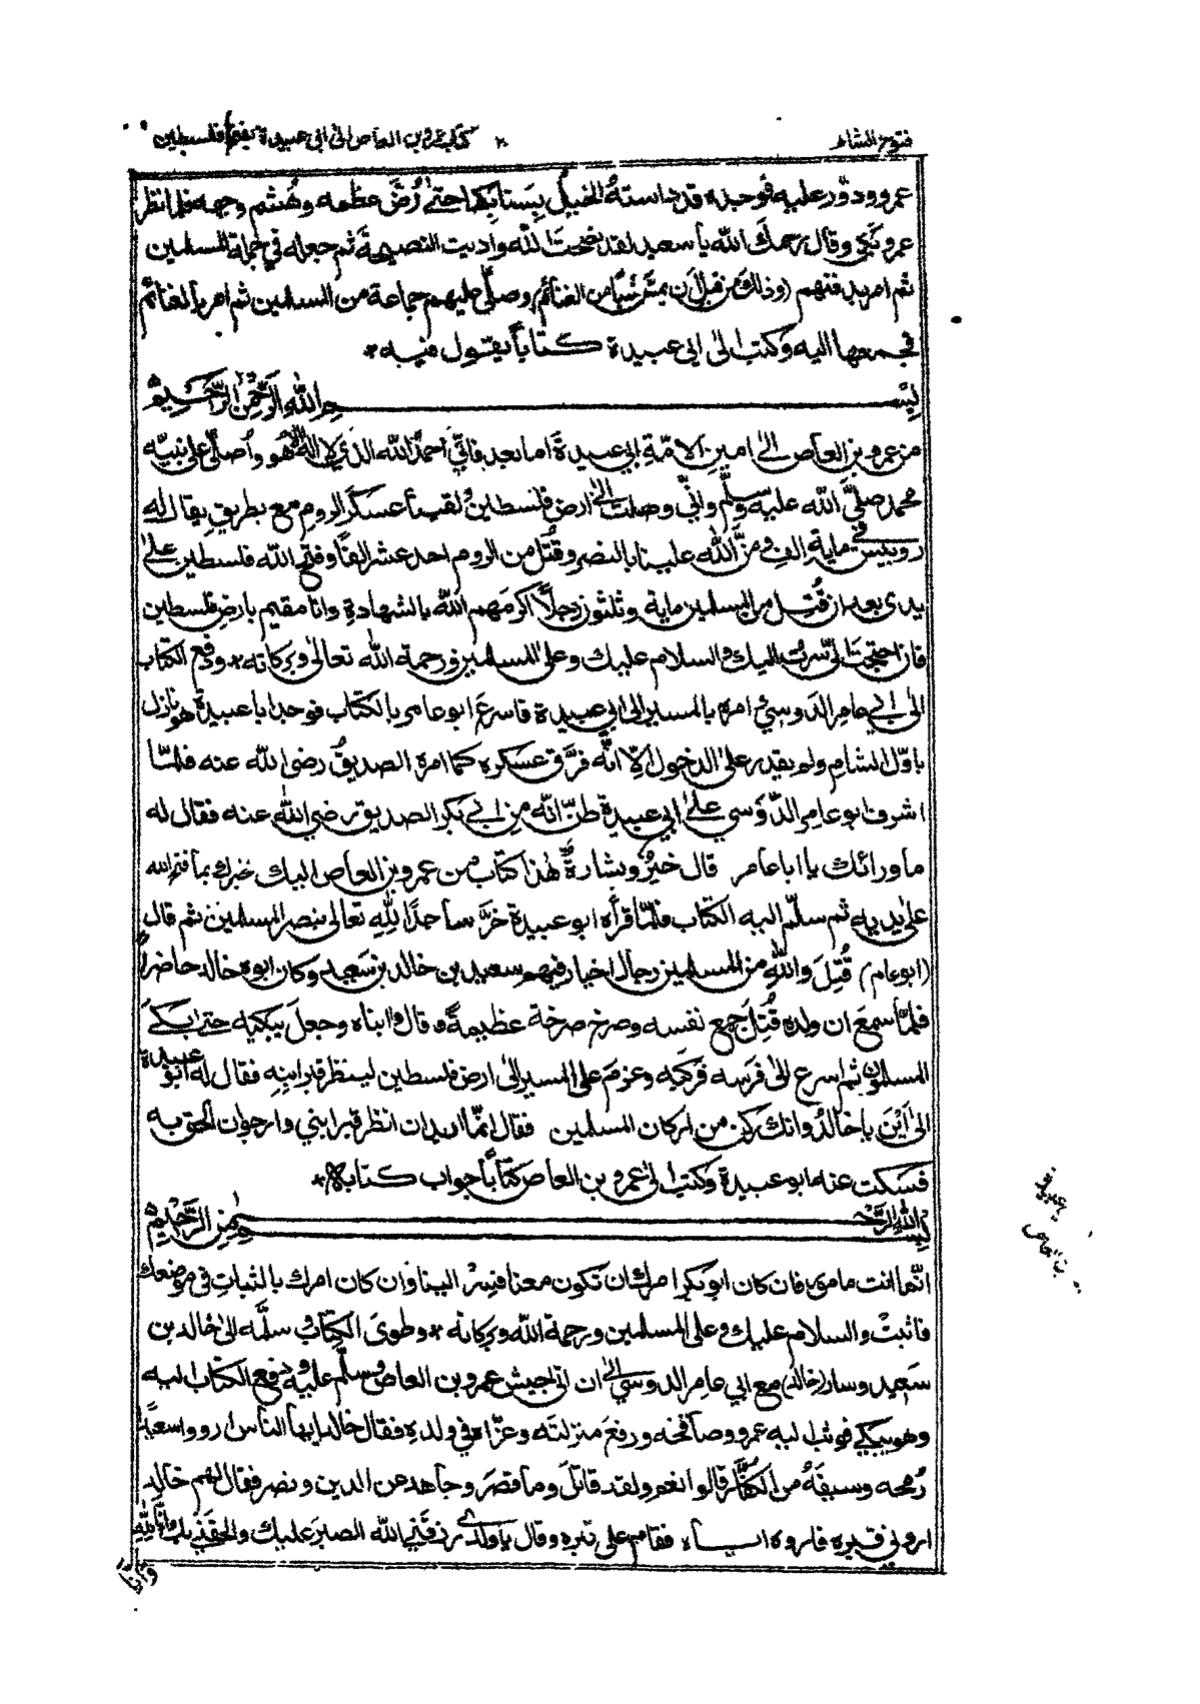 فتوح الشام
كتاب عمرو بن العاص الى ابى عبيدة بفتح فلسطين
عمرو ودوّر عليه فوجده قد داسته الخيل بسنابكها حتى رُضّ عظمه وهُشم وجهه فلما نظر
عمرو بكى وقال رحمك الله يا سعيد لقد نصحت لله واديت النصيحة ثم جعله في جملة المسلمين
ثم امر بدفنهم (وذلك من قبل ان يمس شيئا من الغنائم) وصلّى عليهم جماعة من المسلمين ثم امر بالغنائم
فجمعها اليه وكتب الى ابى عبيدة كتاباً يقول فيه *
بسم الله الرَّحْمٰن الرَّحيم
من عمرو بن العاص الى امين الامّة ابي عبيدة اما بعد فانّي احمدُ الله الذي لا اله الا هو وأصلّي على نبيّه
محمد صلَّى الله عليه وسلّم وانّي وصلت الى ارض فلسطين ولقينا عسكر الروم مع بطريق يقال له
روبيس في ماية الف ومنَّ الله علينا بالنصر وقُتل من الروم احد عشر الفاً وفتح الله فلسطين على
يدى بعد ان قُتل من المسلمين ماية وثلثون رجلاً اكرمهم الله بالشهادة وانا مقيم بارض فلسطين
فان احتجت اليّ سرت اليك والسلام عليك وعلى المسلمين ورحمة الله تعالى وبركاته * ودفع الكتاب
الى ابي عامر الدوسيّ امره بالمسير الى ابي عبيدة فاسرع ابو عامر بالكتاب فوجد ابا عبيدة هو نازل
باوّل الشام ولم يقدر على الدخول الّا انّه فرَّق عسكره كما امره الصديق رضى الله عنه فلمّا
اشرف ابو عامر الدّوسي على ابي عبيدة ظنّ انّه من ابي بكر الصديق رضي الله عنه فقال له
ما ورائك يا ابا عامر قال خيرٌ وبشارةٌ هٰذا كتابٌ من عمرو بن العاص اليك خبرك بما فتح الله
على يديه ثم سلّم اليه الكتاب فلمّا قرأه ابو عبيدة خرَّ ساجدًا لِلّٰهِ تعالى بنصر المسلمين ثم قال
(ابو عامر) قُتِلَ واللهِ من المسلمين رجال اخيار فيهم سعيد بن خالد بن سعيد وكان ابوه خالد حاضراً
فلمّا سمع ان ولده قُتل جمع نفسه وصرخ صرخة عظيمةً وقال وا ابناه وجعل يبكيه حتى ابكى
المسلمون ثم اسرع الى فرسه فركبه وعزم على المسير الى ارض فلسطين لينظر قبر ابنِهِ فقال له ابو عبيدة
الى أيْن يا خالدُ وانك ركن من اركان المسلمين فقال انّما اريد ان انظر قبر ابني وارجو ان الحق به
فسكت عنه ابو عبيدة وكتب الى عمرو بن العاص كتاباً جواب كتابه *
بسم الله الرَّحمٰن الرَّحيم
انّما انت مامور فان كان ابو بكر امرك ان تكون معنا فسِرْ الينا وان كان امرك بالثبات في موضعك
فاثبتْ والسلام عليك وعلى المسلمين ورحمة الله وبركاته * وطوى الكتاب وسلّمه الى خالد بن
سَعيد وسار (خالد) مع ابي عامر الدوسي الى ان اتى جيش عمرو بن العاص وسلّم عليه ودفع الكتاب اليه
وهو يبكي فوثب اليه عمرو وصافحه ورفع منزلته وعزّاه في ولده فقال خالد ايها الناس ارووا سعيد
رُمحه وسيفَهُ من الكفّار قالوا نعم ولقد قاتل وما قصر وجاهد عن الدين ونصر فقال لهم خالد
اروني قبره فاروه ايـاه فقام على قبره وقال يا ولدي رزقني الله الصبر عليك والحقني بك وانا لله
وانّا